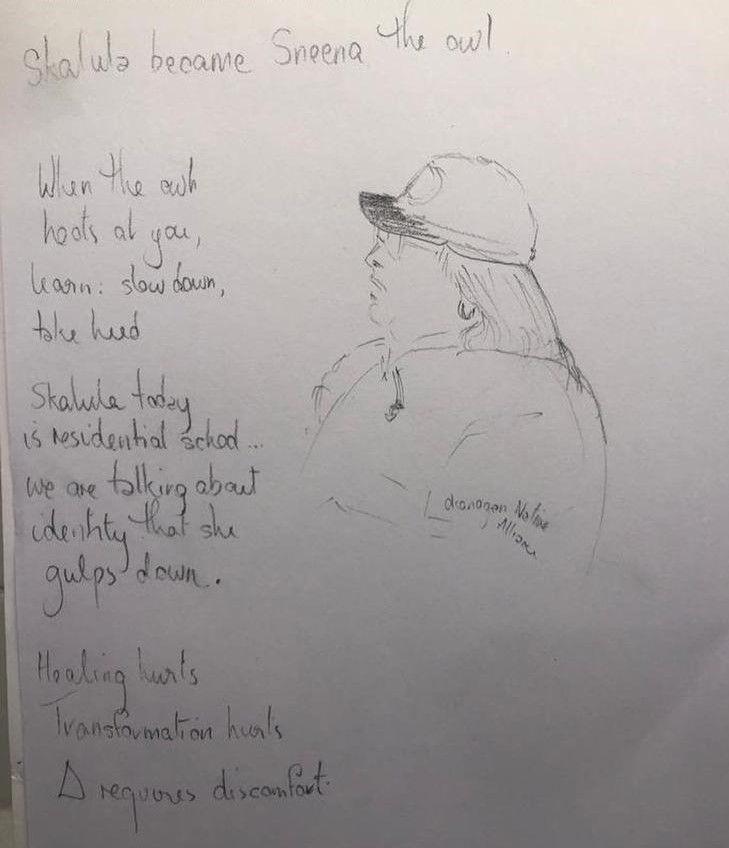 Skalula became Sneena the owl.
When the owl
hoots at you,
learn: slow down,
take heed
Skalula today
is residential school...
we are talking about
identity that she
gulps down.
Okanagan Native
Alliance
Healing hurts
Transformation hurts
Δ requires discomfort.